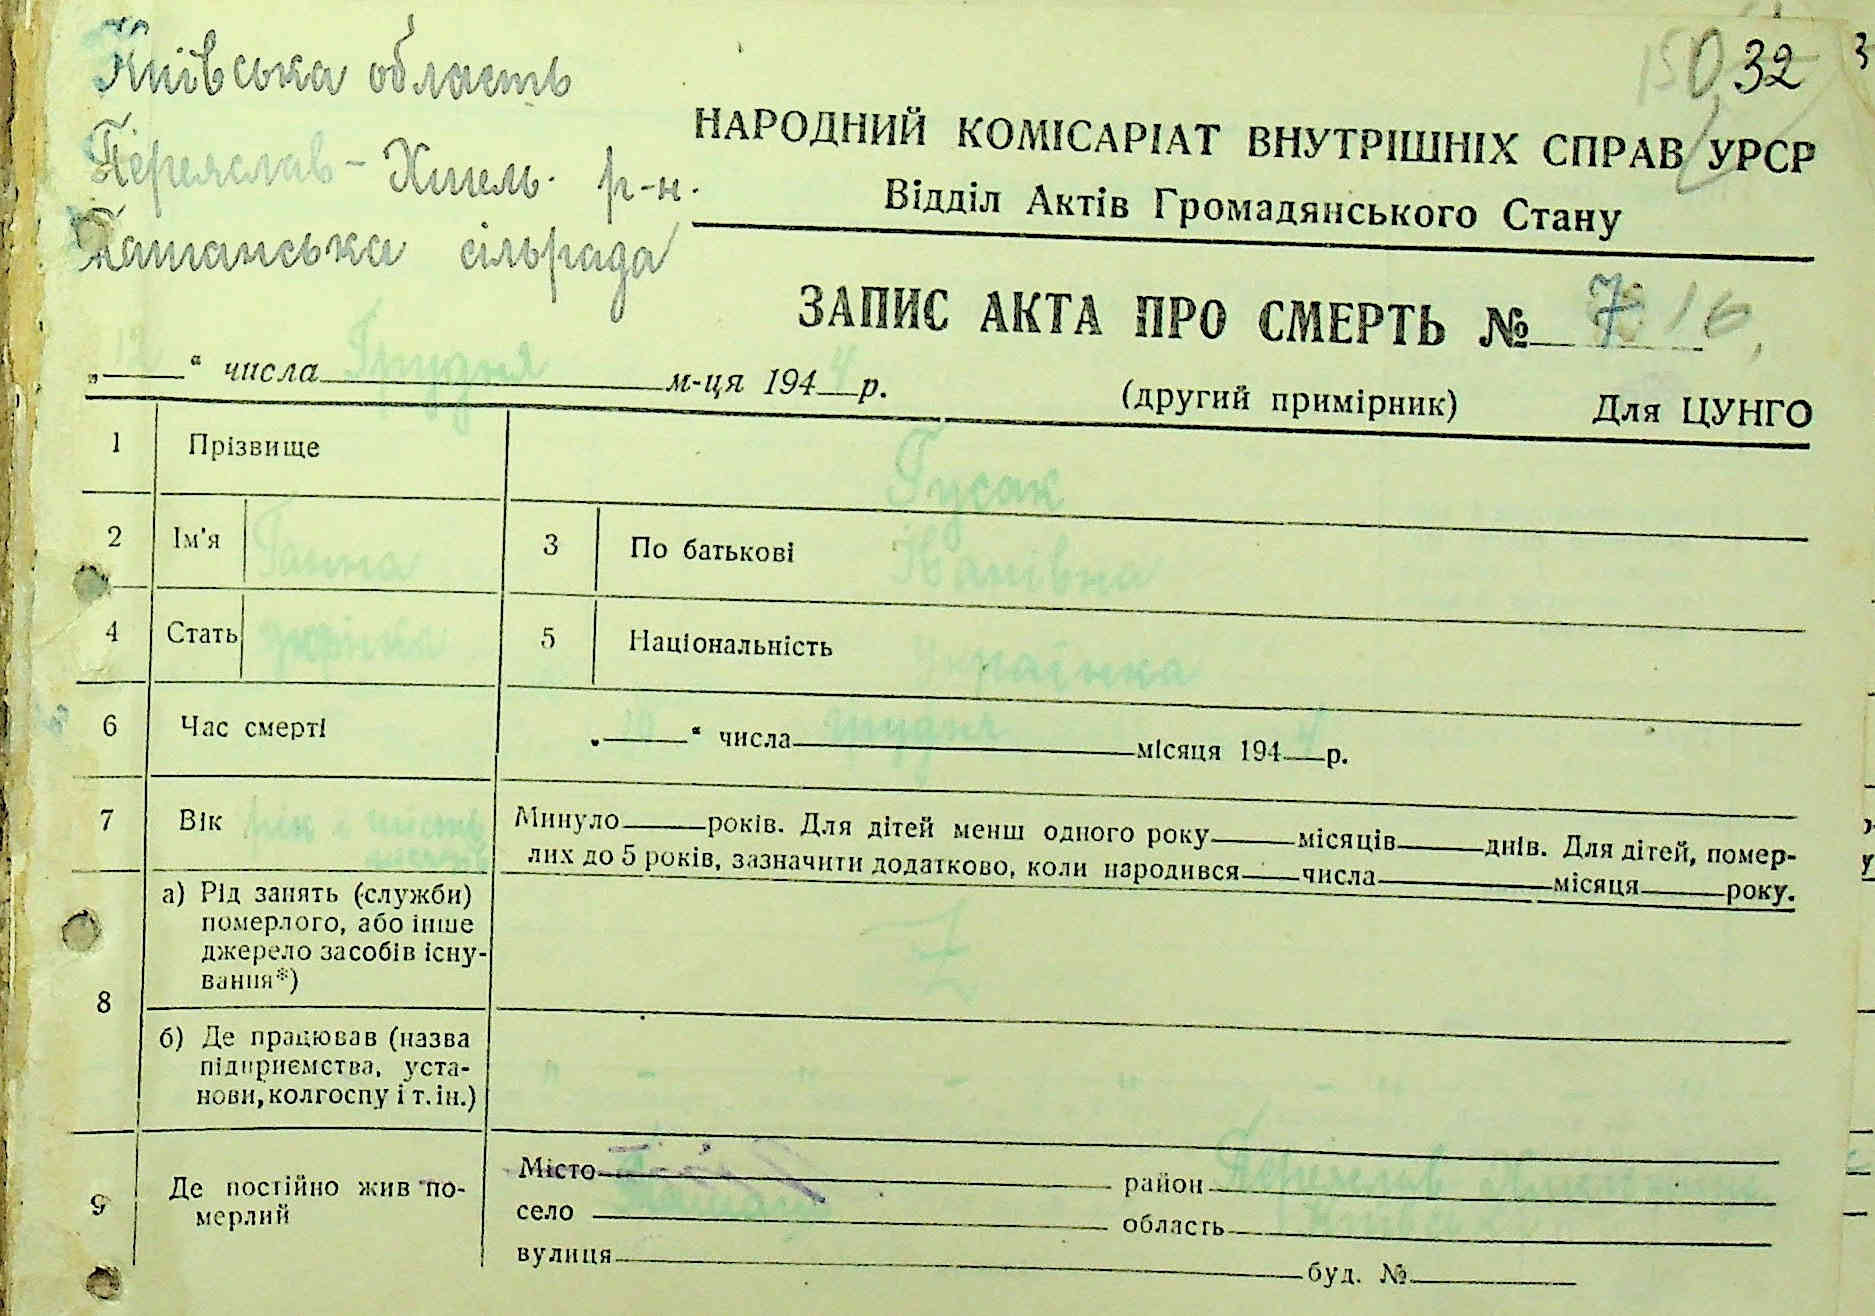 Київська область
32
Переяслав-Хмель. р-н.
НАРОДНИЙ КОМІСАРІАТ ВНУТРІШНІХ СПРАВ УРСР
Відділ Актів Громадянського Стану
Ташанська сільрада
ЗАПИС АКТА ПРО СМЕРТЬ № 7 16
„12“ числа Грудня м-ця 1944 р. (другий примірник) Для ЦУНГО
1 Прізвище Гусак
2 Ім'я Ганна 3 По батькові Іванівна
4 Стать жінка 5 Національність Українка
6 Час смерті „10“ числа грудня місяця 1944 р.
7 Вік рік і шість місяців Минуло років. Для дітей менш одного року місяців днів. Для дітей, помер-
лих до 5 років, зазначити додатково, коли народився числа місяця року.
8 а) Рід занять (служби)
померлого, або інше
джерело засобів існу-
вання*)
б) Де працював (назва
підприємства, уста-
нови, колгоспу і т. ін.)
9 Де постійно жив по-
мерлий
Місто район Переяслав Хмельниць
село Ташань область Київська
вулиця буд. №